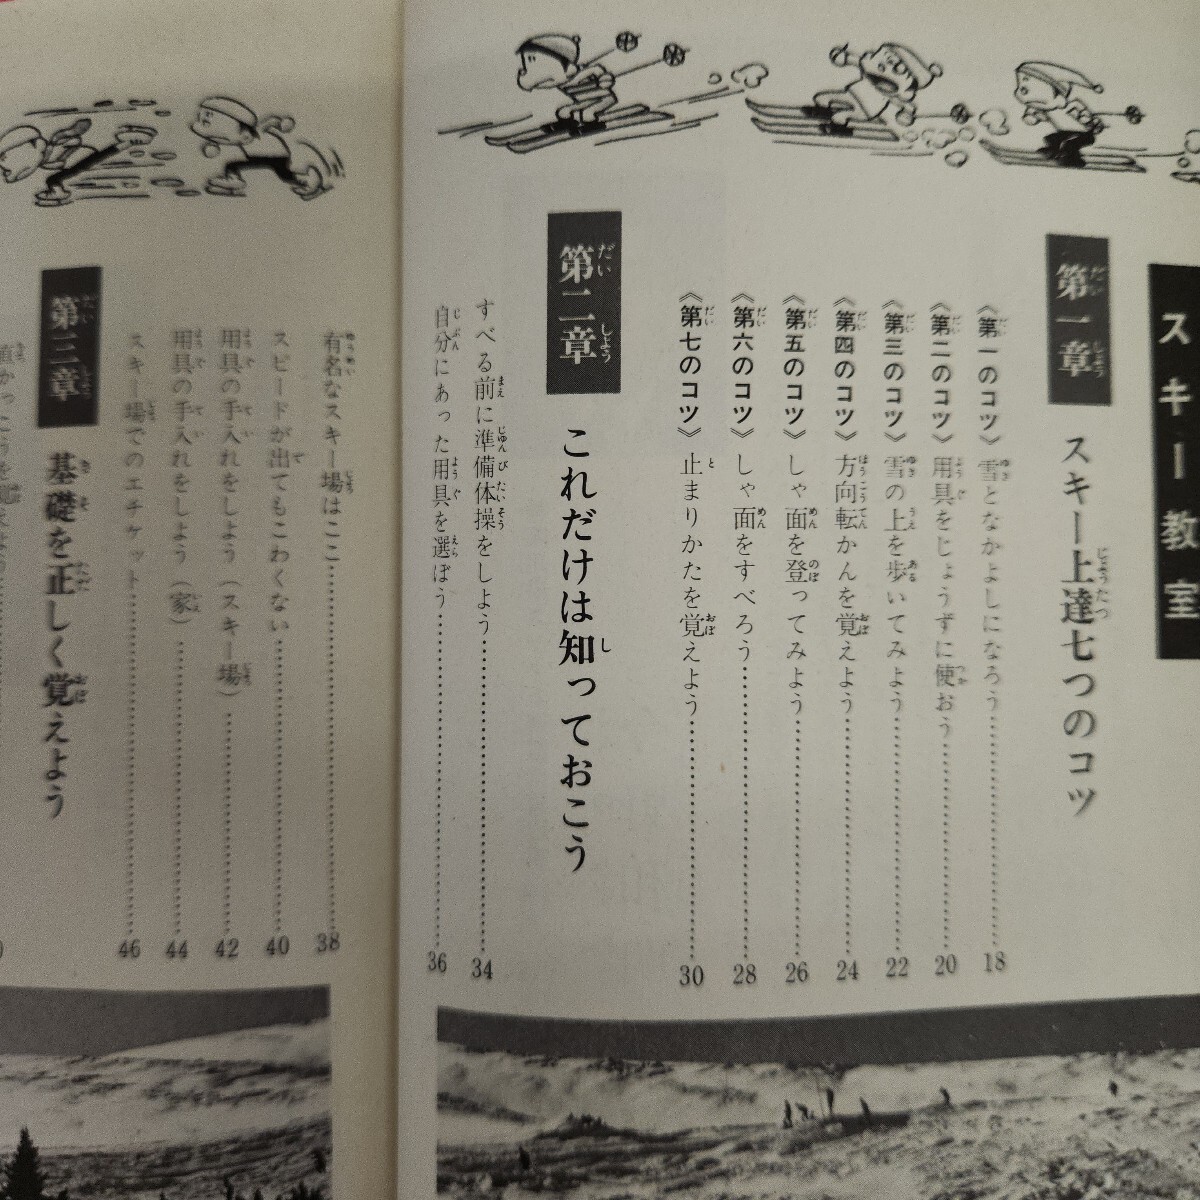 スキー教室
第一章 スキー上達七つのコツ
《第一のコツ》雪となかよしになろう……………18
《第二のコツ》用具をじょうずに使おう……………20
《第三のコツ》雪の上を歩いてみよう……………22
《第四のコツ》方向転かんを覚えよう……………24
《第五のコツ》しゃ面を登ってみよう……………26
《第六のコツ》しゃ面をすべろう……………28
《第七のコツ》止まりかたを覚えよう……………30
第二章 これだけは知っておこう
すべる前に準備体操をしよう……………34
自分にあった用具を選ぼう……………36
有名なスキー場はここ……………38
スピードが出てもこわくない……………40
用具の手入れをしよう（スキー場）……………42
用具の手入れをしよう（家）……………44
スキー場でのエチケット……………46
第三章 基礎を正しく覚えよう